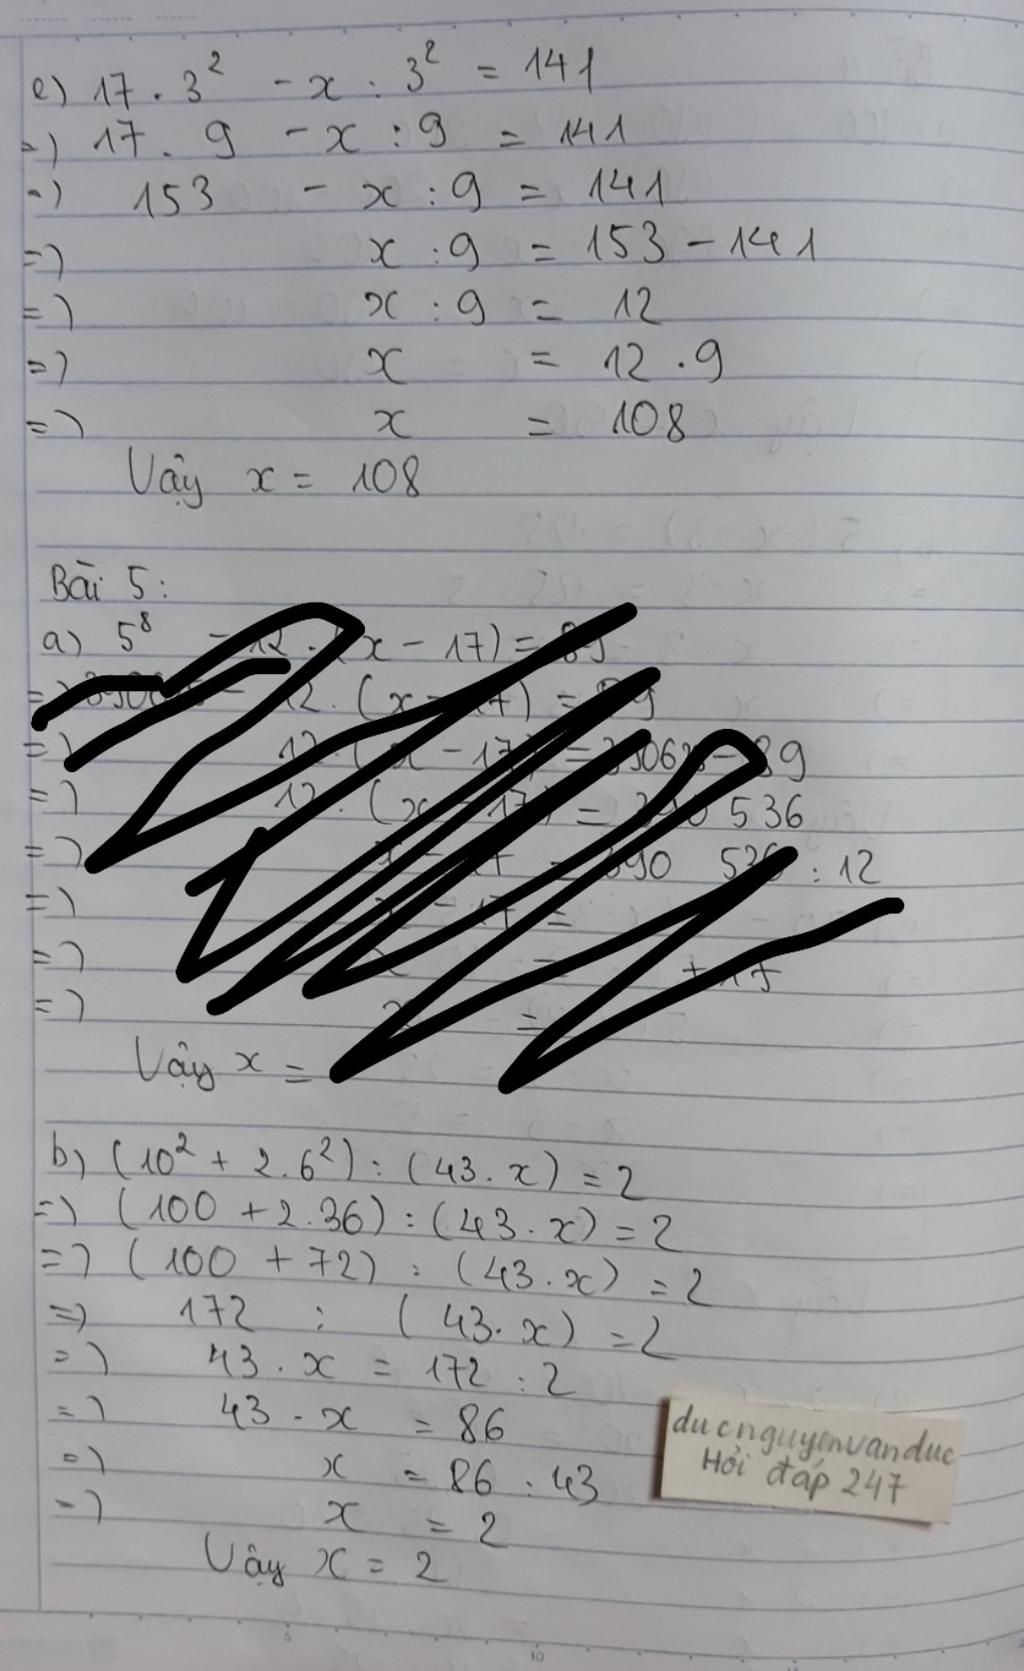 e) 17 . 3² - x : 3² = 141
=) 17 . 9 - x : 9 = 141
=) 153 - x : 9 = 141
=) x : 9 = 153 - 141
=) x : 9 = 12
=) x = 12 . 9
=) x = 108
Vậy x = 108
Bài 5:
a) 5⁸ - 12 . (x - 17) = 89
=) - 12 . (x - 17) = 89
=) 12 . (x - 17) = - 89
=) 12 . (x - 17) = 536
=) = : 12
=) - 17 =
=) x = + 17
=) x =
Vậy x =
b) (10² + 2.6²) : (43 . x) = 2
=) (100 + 2.36) : (43 . x) = 2
=) (100 + 72) : (43 . x) = 2
=) 172 : (43 . x) = 2
=) 43 . x = 172 : 2
=) 43 . x = 86
=) x = 86 : 43
=) x = 2
Vậy x = 2
ducnguyenvanduc
Hỏi đáp 247
10